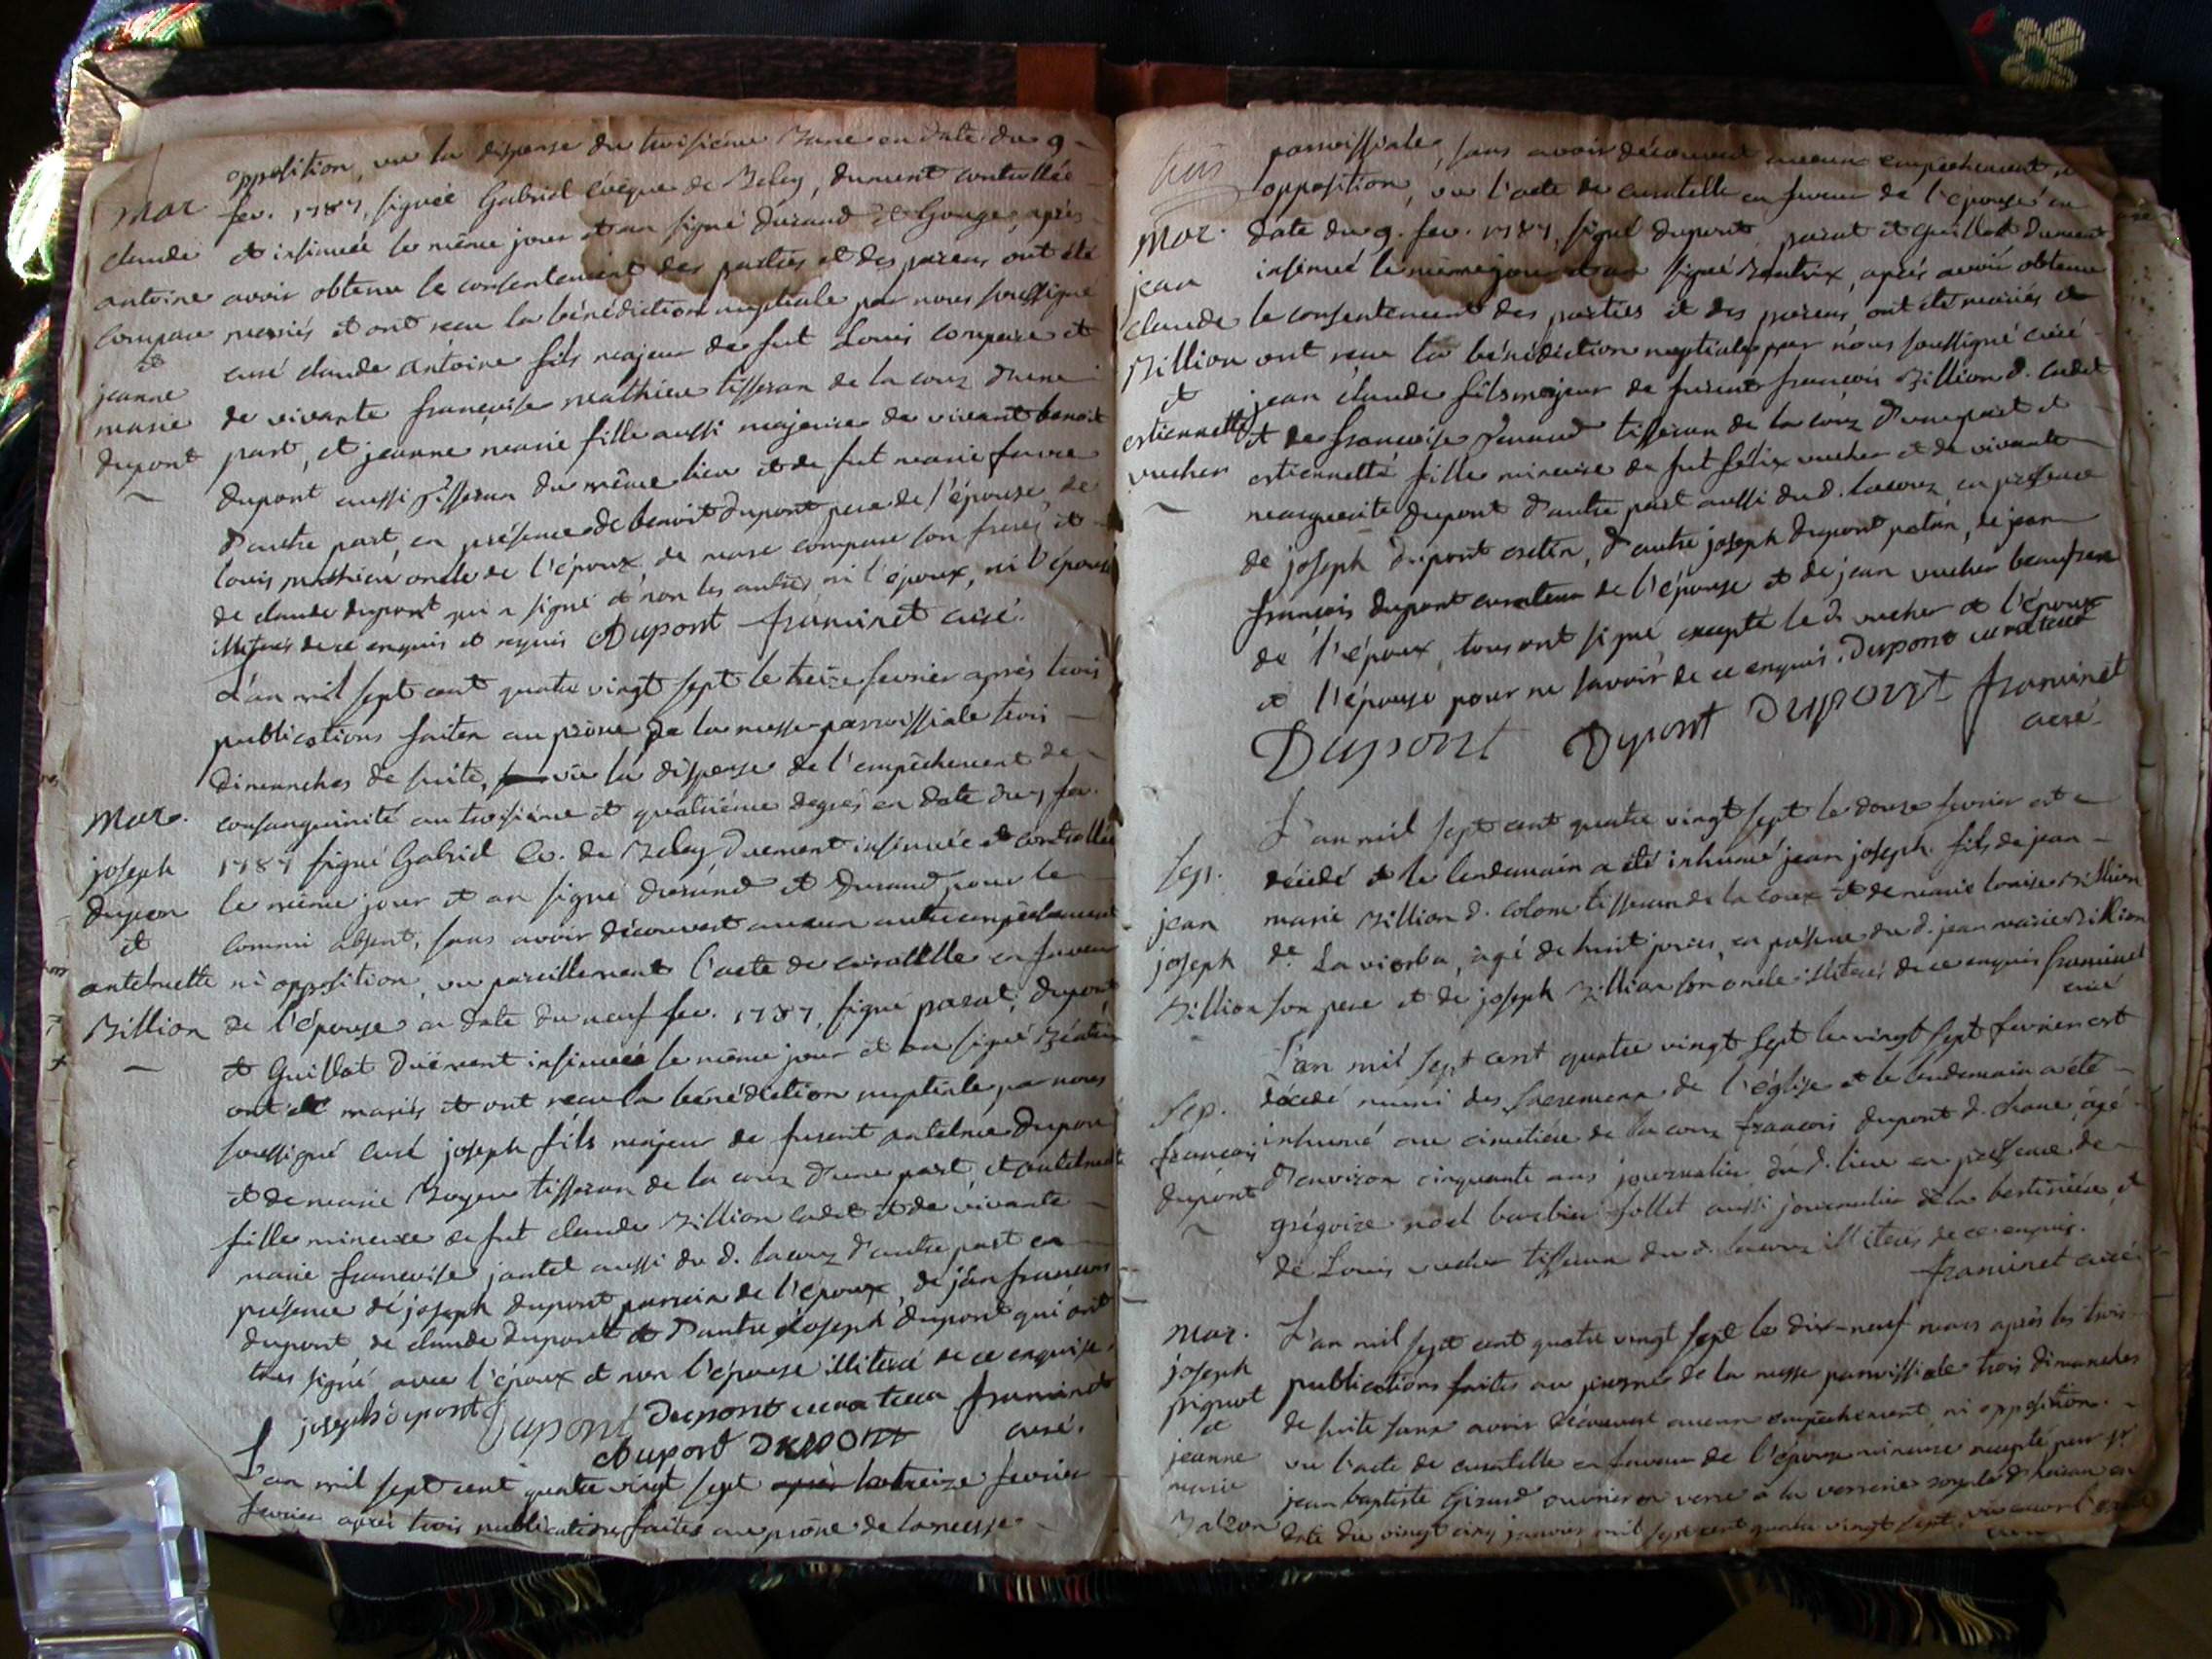 opposition, vu la dispense du troisième Banc en date du 9
Mar. fev. 1787, signée Gabriel évêque de Beley, dument controllée
claude et insinuée le même jour et an signé durand et Gouge, après
antoine avoir obtenu le consentement des parties et des parens ont été
compare mariés et ont recu la bénédiction nuptiale par nous soussigné
et curé claude antoine fils majeur de fut Louis compare et
jeanne
marie de vivante françoise mathieu tisseran de la coux d'une
dupont part, et jeanne marie fille aussi majeure de vivant benoit
dupont aussi tisseran du même lieu et de fut marie favre
d'autre part, en présence de benoit dupont pere de l'épouse de
louis mathieu oncle de l'époux, de marc compare son frere, et
de claude dupont qui a signé et non les autres ni l'époux, ni l'épouse
illiterés de ce enquis et requis Dupont framinet curé.
L'an mil sept cent quatre vingt sept le treize fevrier après trois
publications faites au prône de la messe paroissiale trois
dimanches de suite, vu la dispense de l'empêchement de
Mar. consanguinité au troisième et quatrième degrés en date du 9 fev.
joseph 1787 signé Gabriel Ev. de Beley duement insinuée et controllée
dupon le même jour et an signé durand et Durand pour le
et commi absent, sans avoir découvert aucun autre empêchement
antelmette ni opposition, vu pareillement l'acte de curatelle en faveur
Billion de l'épouse en date du neuf fev. 1787, signé parat, dupont
et Guillot duëment insinuée le même jour et an signé
ont été mariés et ont recu la bénédiction nuptiale par nous
soussigné curé joseph fils majeur de fusent antelme dupon
et de marie Boyeu tisseran de la coux d'une part, et antelmette
fille mineure de fut claude Billion cadet et de vivante
marie francoise jantet aussi du d. lacoux d'autre part en
présence de joseph dupont parrain de l'époux, de jean francois
dupont de claude dupont et d'autre joseph dupont qui ont
tous signé avec l'époux et non l'épouse illiterée de ce enquise.
joseph dupont Dupont Dupont curateur framinet
Dupont DUPONT curé.
L'an mil sept cent quatre vingt sept après le treize fevrier
fevrier après trois publications faites au prône de la messe
paroissiale, sans avoir découvert aucun empêchement ni
opposition, vu l'acte de curatelle en faveur de l'épouse en
Mar. date du 9. fev. 1787, signé dupont, parat et guillot dument
jean insinué le même jour et an signé, après avoir obtenu
claude le consentement des parties et des parens, ont été mariés et
Billion ont reçu la bénédiction nuptiale par nous soussigné curé
et jean claude fils majeur de fusent francois Billion d. cadet
estiennette et de francoise tisseran de la coux d'une part et
vucher estiennette fille mineure de fut félix vucher et de vivante
marguerite dupont d'autre part aussi du d. lacoux, en présence
de joseph dupont, d'autre joseph dupont, de jean
françois dupont curateur de l'épouse et de jean vucher beaufrere
de l'époux, tous ont signé, excepté le d. vucher et l'époux
et l'épouse pour ne savoir de ce enquis. Dupont curateur
Dupont Dupont DUPONT framinet
curé
L'an mil sept cent quatre vingt sept le douze fevrier est
Sep. décédé et le lendemain a été inhumé jean joseph. fils de jean
jean marie Billion d. colom tisseran de la coux et de marie louise Billion
joseph de Laviorba, agé de huit jours, en présence du d. jean marie Billion
Billion son pere et de joseph Billion son oncle illiterés de ce enquis framinet
curé
L'an mil sept cent quatre vingt sept le vingt sept fevrier est
Sep. décédé muni des sacremens de l'église et le lendemain a été
francois inhumé au cimetière de la coux francois dupont d. agé
dupont d'environ cinquante ans journalier du d. lieu en présence de
grégoire noel barbier follet aussi journalier de la bertinière, et
de Louis vucher tisseran du d. lacoux illiterés de ce enquis.
framinet curé
Mar. L'an mil sept cent quatre vingt sept le dix-neuf mars après les trois
joseph publications faites au prosne de la messe paroissiale trois dimanches
piquot
et de suite sans avoir découvert aucun empêchement ni opposition.
jeanne vu l'acte de curatelle en faveur de l'épouse mineure accepté par
marie jean baptiste Girard ouvrier en verre à la verrerie royale en
date du vingt cinq janvier mil sept cent quatre vingt sept, vu